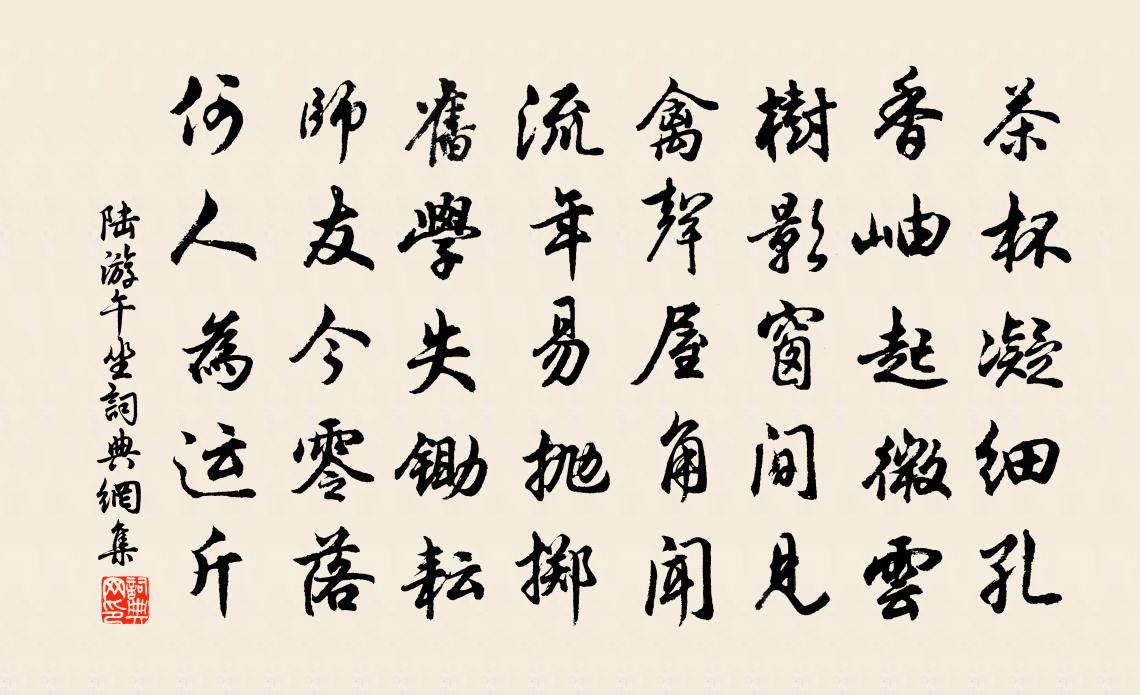 茶杯凝細孔
香岫起微雲
樹影窗間見
禽聲屋角聞
流年易抛擲
舊學失鋤耘
師友今零落
何人為运斤
陆游午坐詞典網集
詞典网印